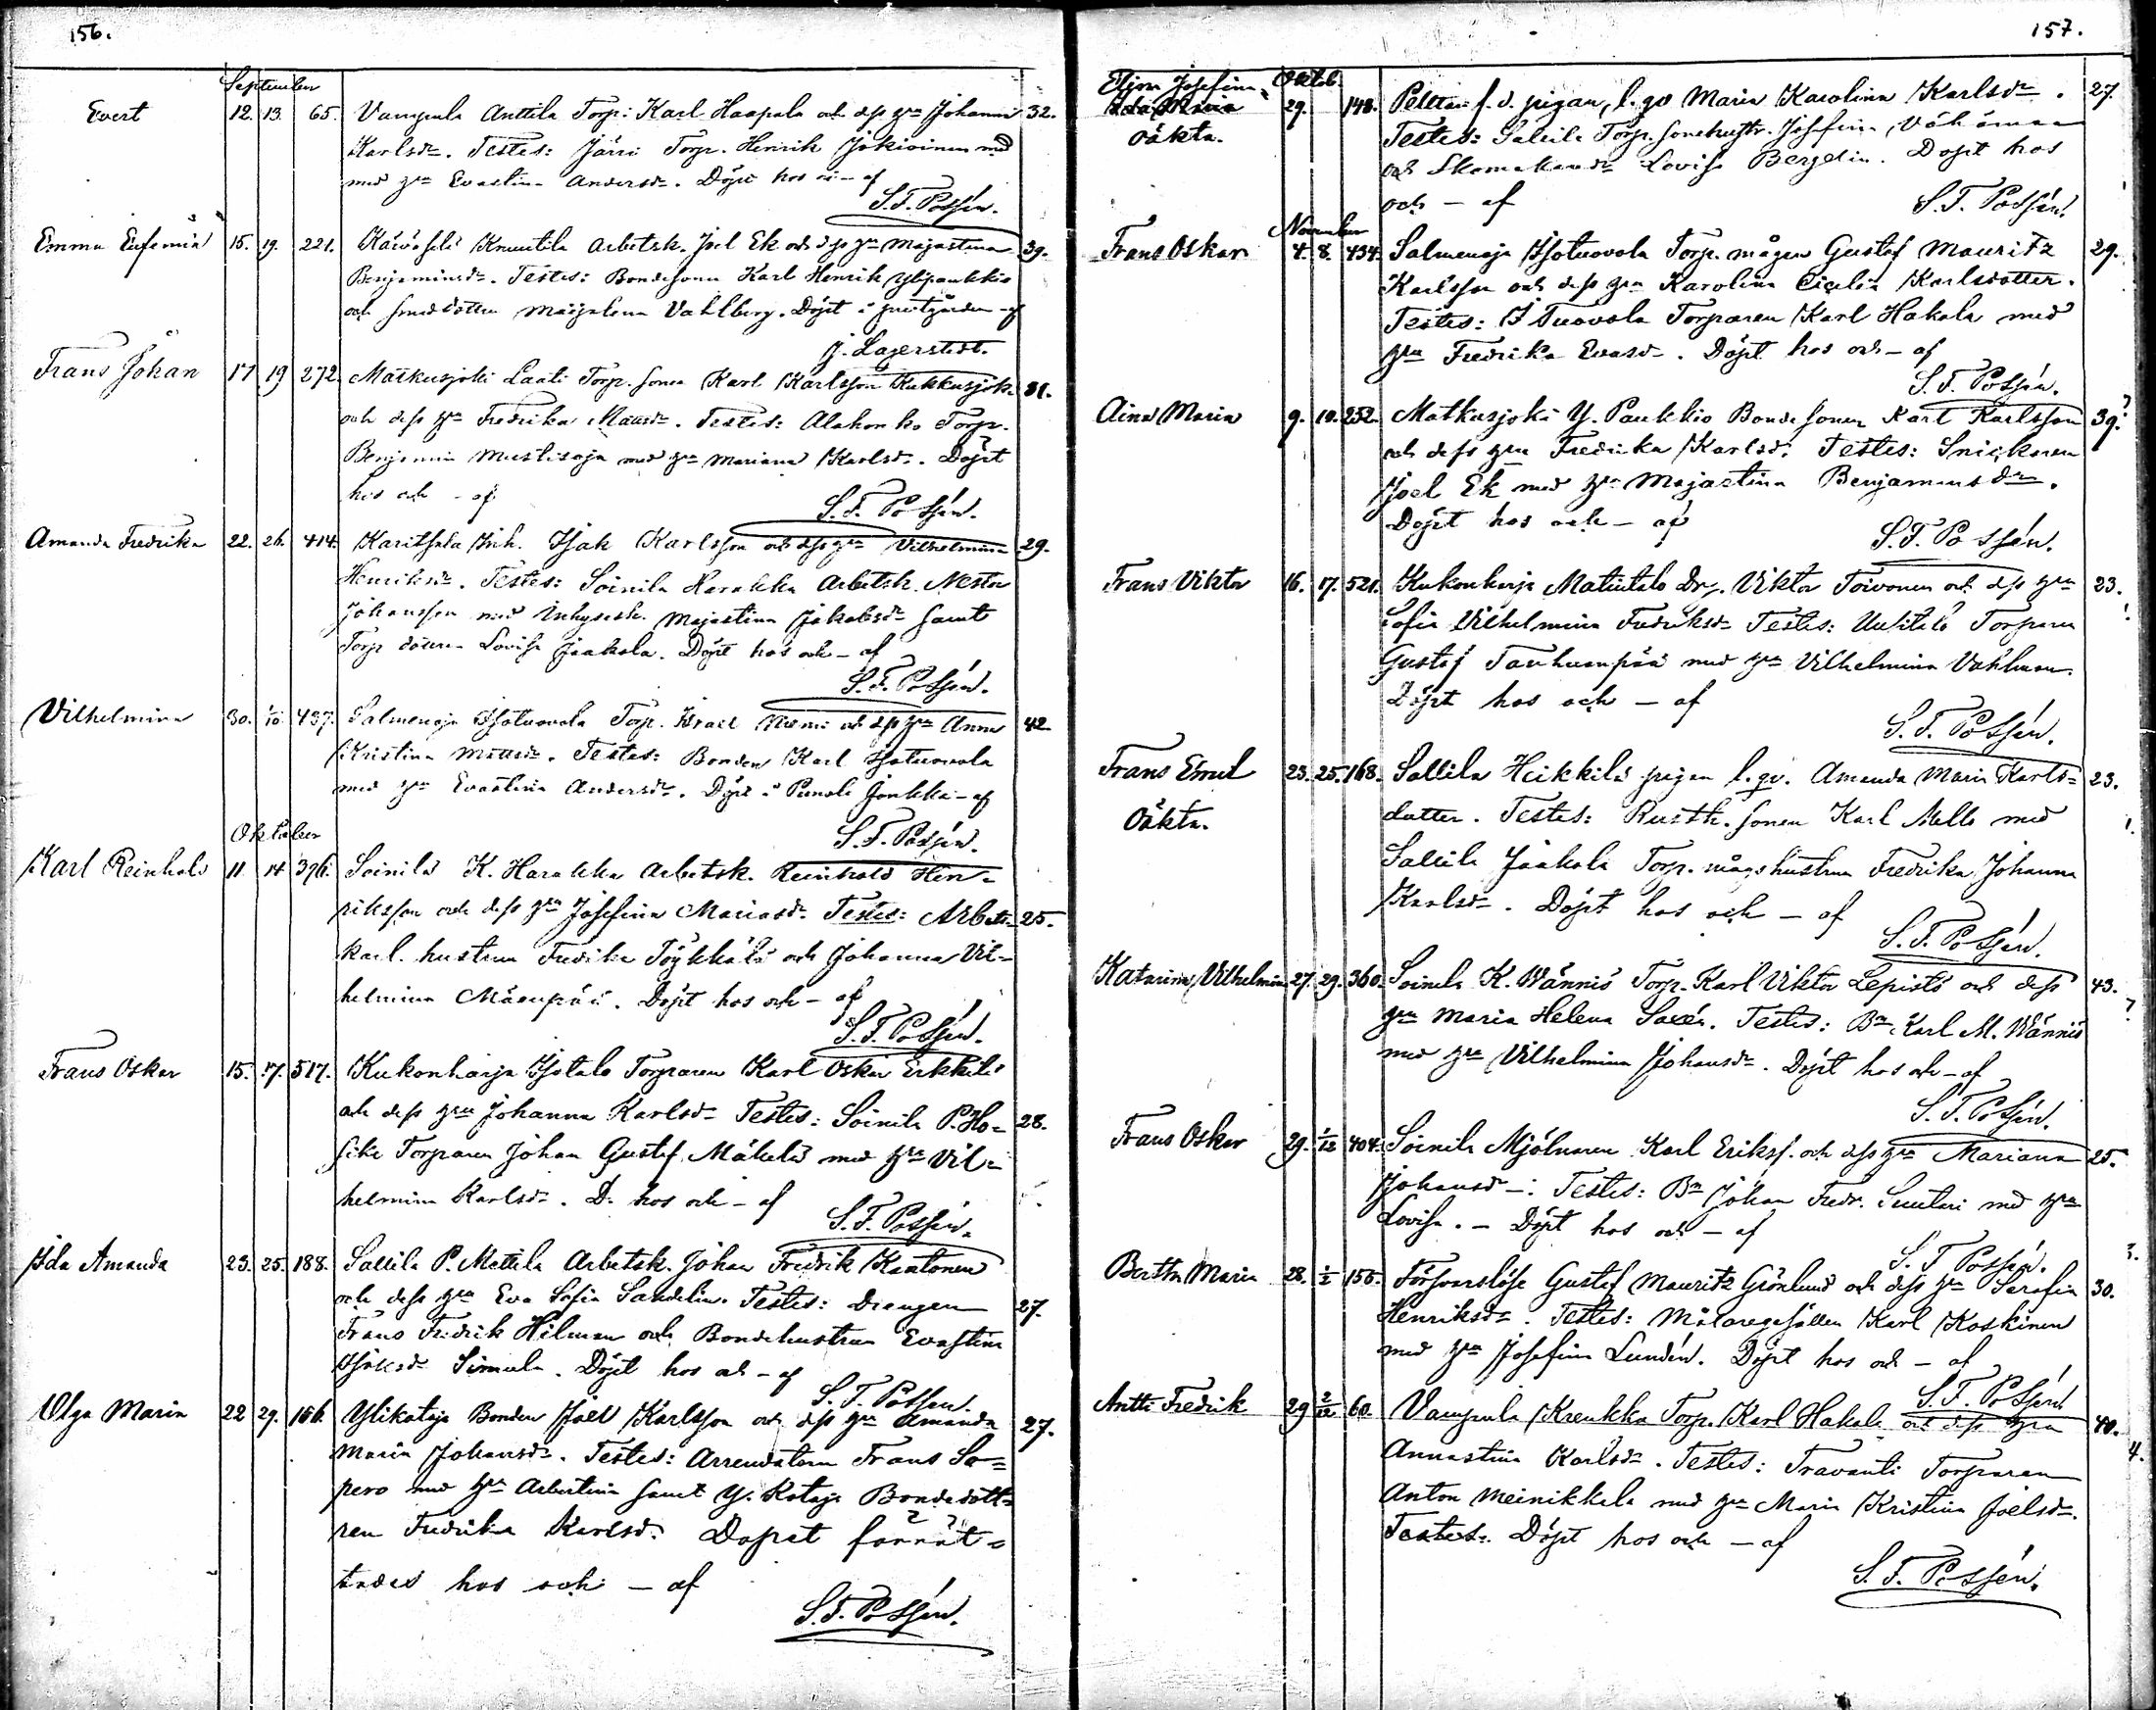 156.
September
Evert 12. 13. 65. Vampula Anttila Torp. Karl Haapala och dess hu Johanna 32.
Karlsdr. Testes: Järvi Torp. Henrik Jokioinen med
med hu Evastina Andersdr. Döpt hos och - af
S. F. Possén.
Emma Eufemia 15. 19. 221. Knuutila Arbetsk. Joel Ek och dess hu Majastina 39.
Benjaminsdr. Testes: Bondesonen Karl Henrik Ylipaukkio
och smeddottern Maijalena Vahlberg. Döpt i prestgården af
J. Lagerstedt.
Frans Johan 17 19 272. Matkusjoki Laati Torp. sonen Karl Karlsson Kukkusjoki 31.
och dess hu Fredrika Mattsdr. Testes: Alahonko Torp.
Benjamin Mustisoja med hu Mariana Karlsdr. Döpt
hos och - af
S. F. Possén.
Amanda Fredrika 22. 26. 414. Karitsala Inh. Isak Karlsson och dess hu Vilhelmina 29.
Henriksdr. Testes: Soinila Harakka Arbetsk. Nestor
Johansson med Inhysesh. Majastina Jakobsdr samt
Torp. dottren Lovisa Jaakola. Döpt hos och - af
S. F. Possén.
Vilhelmina 30. 1/10 437. Salmenoja Isotuovola Torp. Israel Niemi och dess hu Anna 42
Kristina Mattsdr. Testes: Bonden Karl Isotuovola
med hu Evastina Andersdr. Döpt i Punola Jonkka - af
S. F. Possén.
Oktober
Karl Reinhold 11 14 396. Soinila K. Harakka Arbetsk. Reinhold Hen-
riksson och dess hu Josefina Mariasdr. Testes: Arbets- 25.
karl. hustrun Fredrika Töykkälä och Johanna Vil-
helmina Mäenpää. Döpt hos och - af
S. F. Possén.
Frans Oskar 15. 17. 517. Kukonharja Isotalo Torparen Karl Oskar Erkkilä
och dess hu Johanna Karlsdr. Testes: Soinila P. Ho- 28.
siko Torparen Johan Gustaf Mäkelä med hu Vil-
helmina Karlsdr. D. hos och - af
S. F. Possén.
Ida Amanda 23. 25. 188. Sallila P. Mattila Arbetsk. Johan Fredrik Kantonen
och dess hu Eva Sofia Sandelin. Testes: Drengen 27.
Frans Fredrik Hilman och Bondehustrun Evastina
Isaksdr Simula. Döpt hos och - af
S. F. Possén.
Olga Maria 22 29. 166. Ylikotaja Bonden Joel Karlsson och dess hu Amanda 27.
Maria Johansdr. Testes: Arrendatorn Frans So-
pero med hu Albertina samt Y. Kotaja Bondedott-
ren Fredrika Karlsd. Dopet förrät-
tades hos och - af
S. F. Possén.
157.
Oktob.
Josefina
29. 148. f. d. pigan, l. qv Maria Karolina Karlsdr. 27.
oäkta. Testes: Sallila Torp. sonehustr. Josefina
och Skomakaredr Lovisa Bergelin. Döpt hos
och - af
S. F. Possén.
November
Frans Oskar 4. 8. 434. Salmenoja Isotuovola Torp. mågen Gustaf Mauritz 29.
Karlsson och dess hu Karolina Cicilia Karlsdotter.
Testes: I Tuovola Torparen Karl Hakala med
hu Fredrika Evasdr. Döpt hos och - af
S. F. Possén.
Aina Maria 9. 10. 252. Matkusjoki Y. Paukkio Bondesonen Karl Karlsson 39.
och dess hu Fredrika Karlsd. Testes: Snickaren
Joel Ek med hu Majastina Benjaminsdr.
Döpt hos och - af
S. F. Possén.
Frans Viktor 16. 17. 521. Kukonharja Matintalo Dr. Viktor Toivonen och dess hu 23.
Sofia Vilhelmina Fredriksdr Testes: Uusitalo Torparen
Gustaf Tanhuanpää med hu Vilhelmina Vahlman.
Döpt hos och - af
S. F. Possén.
Frans Emil 23. 25. 168. Sallila Heikkilä pigan l. qv. Amanda Maria Karls- 23.
Oäkta. dotter. Testes: Rusth. sonen Karl Mello med
Sallila Jaakola Torp. mågshustrun Fredrika Johanna
Karlsdr. Döpt hos och - af
S. F. Possén.
Katarina Vilhelmina 27. 29. 360. Soinila K. Wännis Torp. Karl Viktor Lepistö och dess 43.
hu Maria Helena Saxén. Testes: Bn Karl M. Wännis
med hu Vilhelmina Johansdr. Döpt hos och - af
S. F. Possén.
Frans Oskar 29. 1/12 404. Soinila Mjölnaren Karl Eriksf. och dess hu Mariana 25.
Johansd -: Testes: Bn Johan Fredr. Suutari med hu
Lovisa. - Döpt hos och - af
S. F. Possén.
Bertha Maria 28. 1/2 155. Försvarslöse Gustaf Mauritz Grönlund och dess hu Serafia 30.
Henriksdr. Testes: Målaregesällen Karl Koskinen
med hu Josefina Lundén. Döpt hos och - af
S. F. Possén.
Antti Fredrik 29 2/12 60. Vampula Krenkka Torp. Karl Hakala och dess hu 40.
Annastina Karlsdr. Testes: Travanti Torparen
Anton Meinikkala med hu Maria Kristina Joelsdr.
Testes. Döpt hos och - af
S. F. Possén.